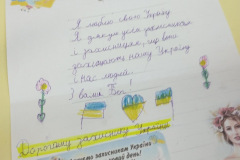 Я люблю свою Україну
Я дякую усім захисникам
і захисницям, що вони
захищають нашу Україну
і нас людей.
З вами Бог!
Хороброму захиснику України
захисникам України